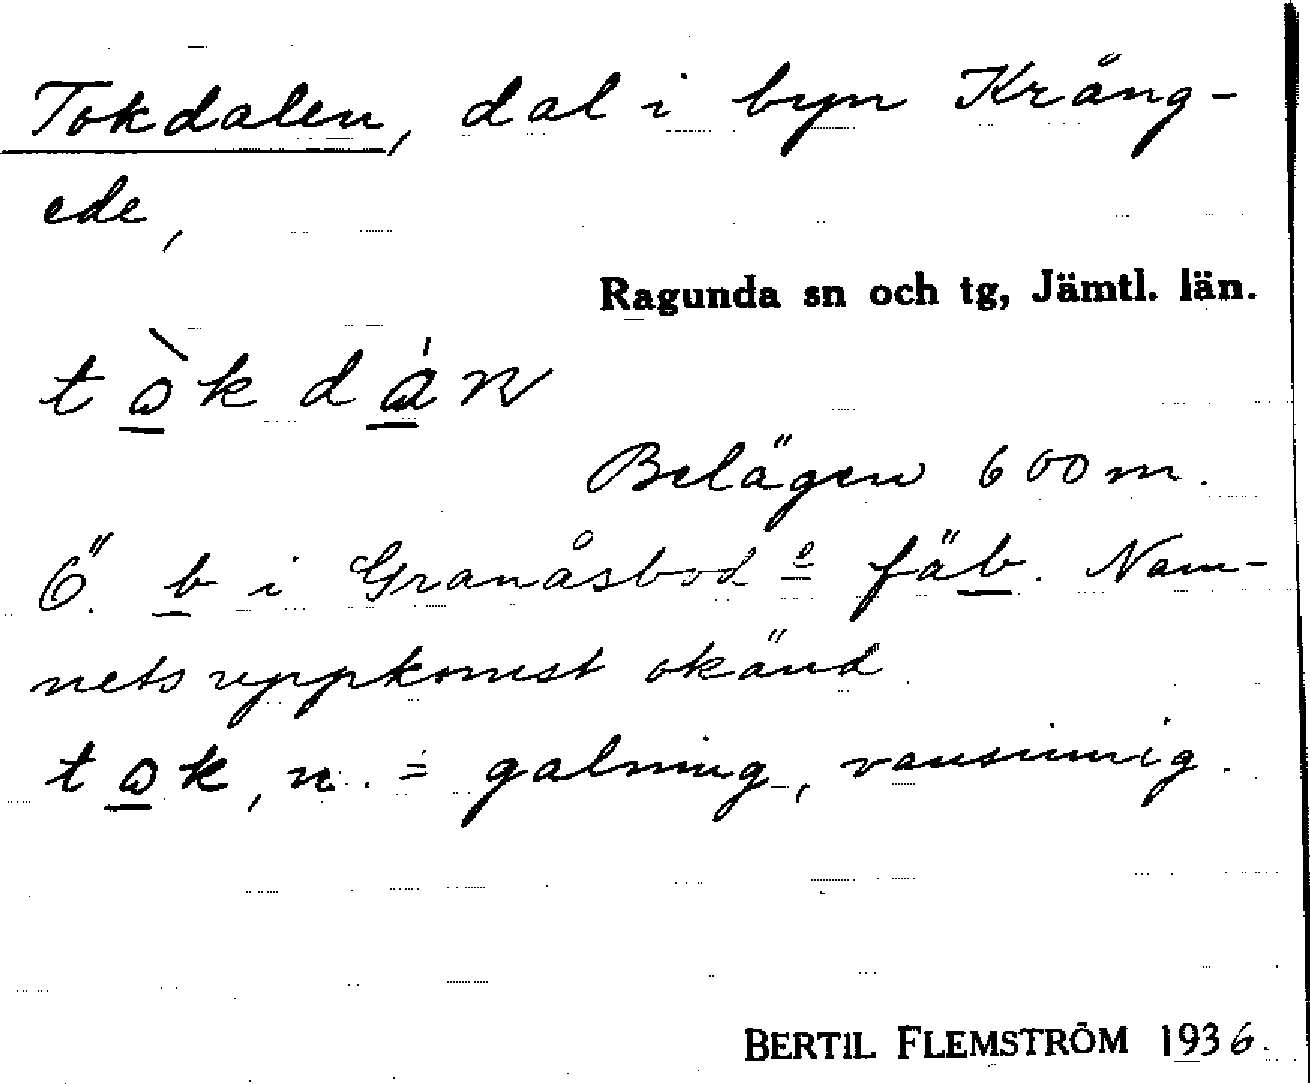 Tokdalen, dal i byn Kräng-
ede,
Ragunda sn och tg, Jämtl. län.
tòkdán
Belägen 600 m.
Ö. b i Granåsbode fäb. Nam-
nets uppkomst okänd.
tok, n. = galning, vansinnig.
BERTIL FLEMSTRÖM 1936.